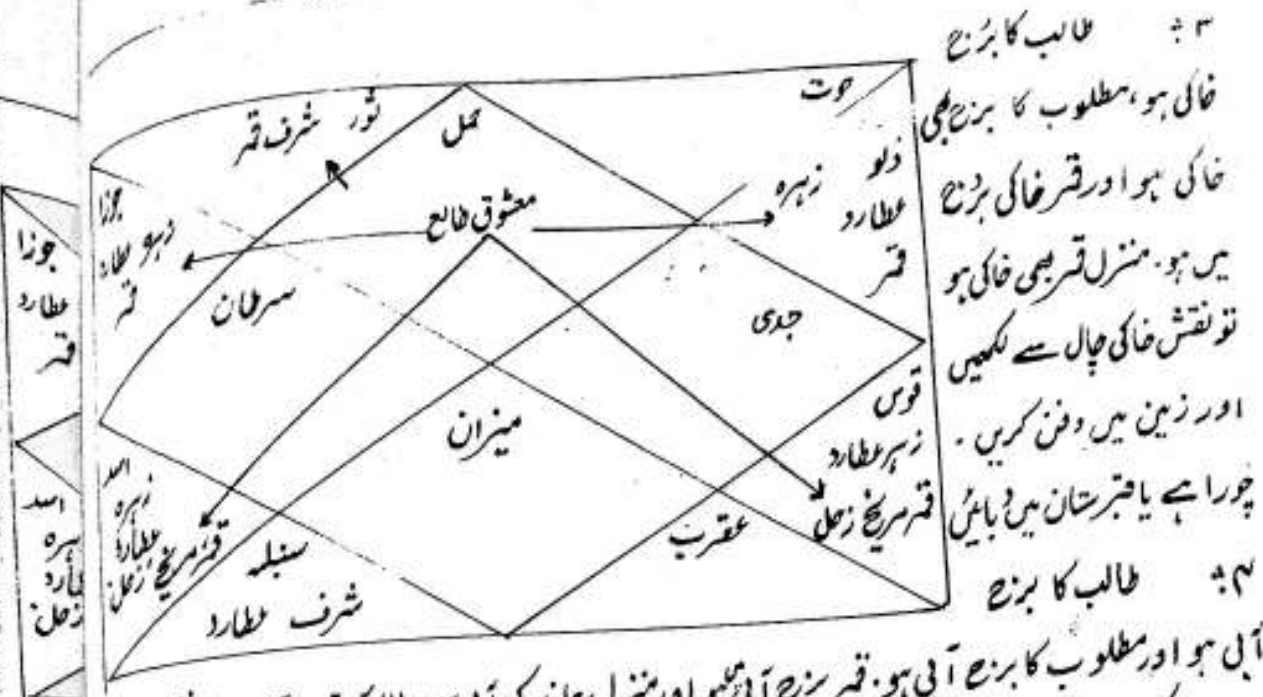 ۳: طالب کا بُرج
خاکی ہو، مطلوب کا برج بھی
خاکی ہو اور قمر خاکی بُرج
میں ہو۔ منزل قمر بھی خاکی ہو
تو نقش خاکی چال سے لکھیں
اور زمین میں دفن کریں۔
چوراہے یا قبرستان میں دبائیں
۴: طالب کا برج
آبی ہو اور مطلوب کا برج آبی ہو۔ قمر برج آبی میں ہو اور منزل
حوت
حمل
ثور شرف قمر
دلو زہرہ
عطارد
قمر
معشوق طالع
جوزا
زہرہ عطارد
قمر
سرطان
جدی
میزان
قوس
زہرہ عطارد
قمر مریخ زحل
عقرب
سنبلہ
شرف عطارد
اسد
زہرہ
عطارد
قمر مریخ زحل
جوزا
عطارد
قمر
اسد
زحل